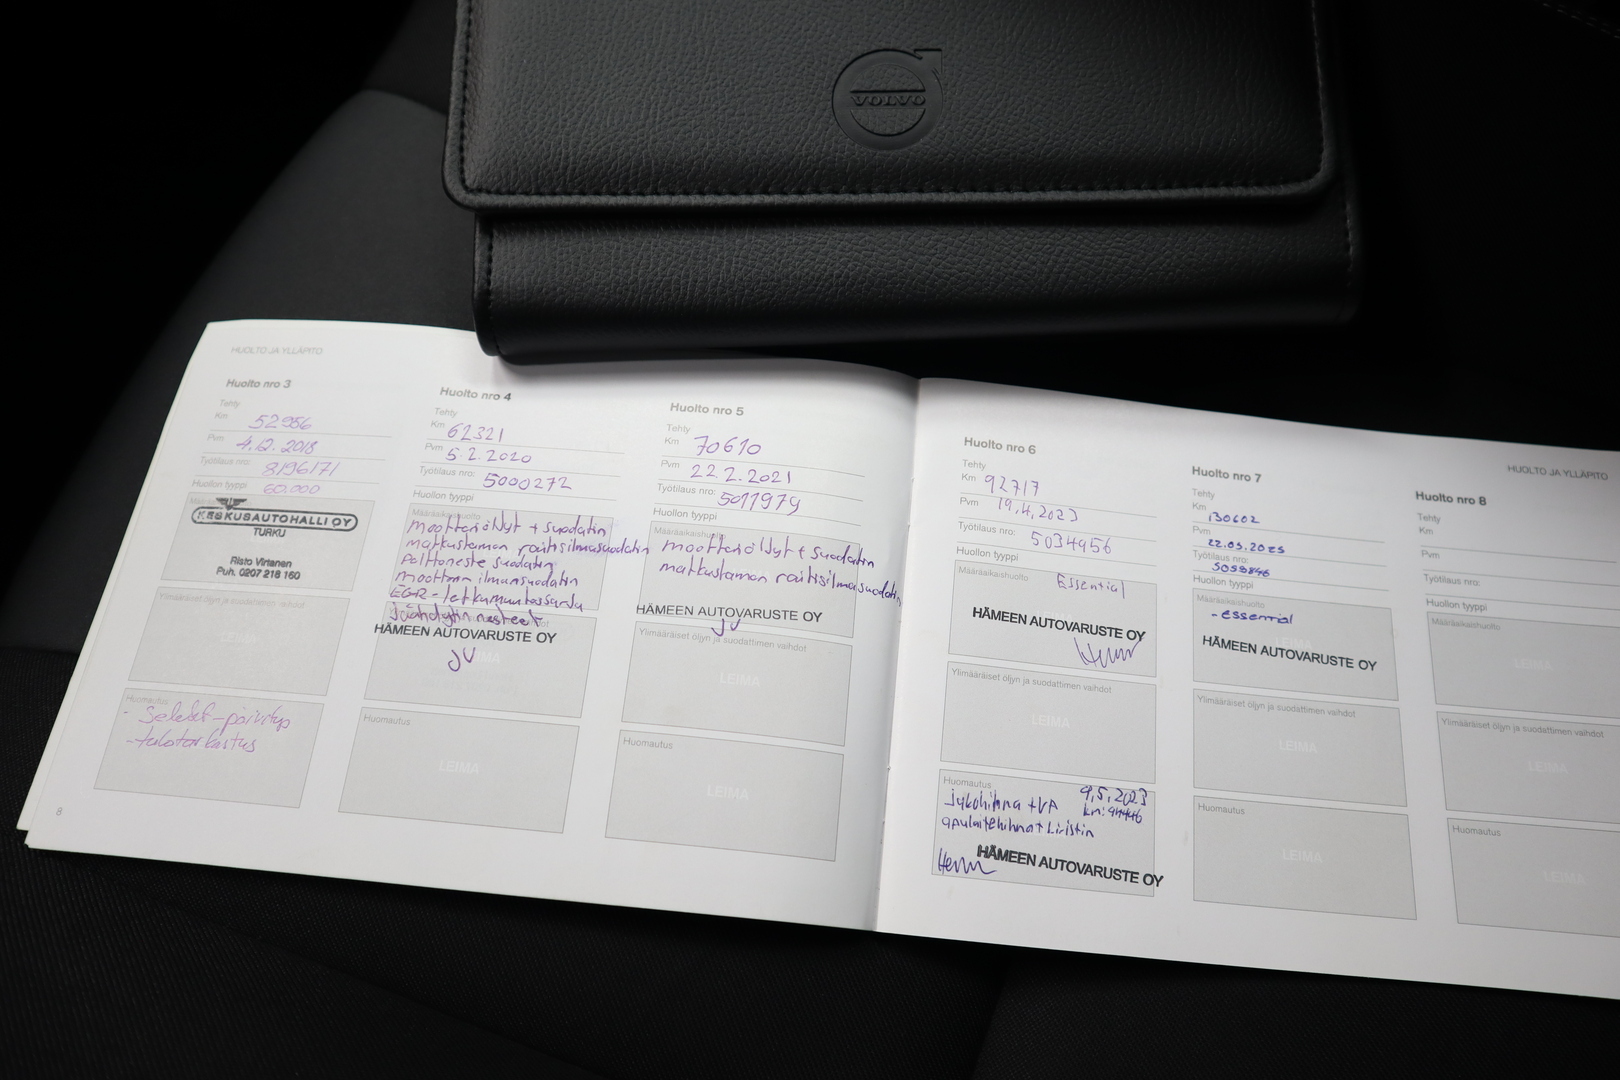 VOLVO
HUOLTO JA YLLÄPITO
Huolto nro 3
Tehty
Km 52956
Pvm 4.12.2018
Työtilaus nro: 8196171
Huollon tyyppi 60.000
KESKUSAUTOHALLI OY
TURKU
Risto Virtanen
Puh. 0207 218 160
Ylimääräiset öljyn ja suodattimen vaihdot
LEIMA
Huomautus
- Selekt-päivitys
- tulotarkastus
8
Huolto nro 4
Tehty
Km 62321
Pvm 5.2.2020
Työtilaus nro: 5000272
Huollon tyyppi
Määräaikaishuolto
moottoriöljyt + suodatin
matkustamon raitisilmasuodatin
polttoneste suodatin
moottorin ilmansuodatin
EGR-letkumuutossarja
jäähdytin nesteet
HÄMEEN AUTOVARUSTE OY
JV
Huomautus
LEIMA
Huolto nro 5
Tehty
Km 70610
Pvm 22.2.2021
Työtilaus nro: 5011979
Huollon tyyppi
Määräaikaishuolto
moottoriöljyt + suodatin
matkustamon raitisilmasuodatin
HÄMEEN AUTOVARUSTE OY
JV
Ylimääräiset öljyn ja suodattimen vaihdot
LEIMA
Huomautus
LEIMA
Huolto nro 6
Tehty
Km 92717
Pvm 19.4.2023
Työtilaus nro: 5034956
Huollon tyyppi
Määräaikaishuolto
Essential
HÄMEEN AUTOVARUSTE OY
Ylimääräiset öljyn ja suodattimen vaihdot
LEIMA
Huomautus
9.5.2023
jakohihna + VP km:
apulaitehihna + kiristin
HÄMEEN AUTOVARUSTE OY
Huolto nro 7
Tehty
Km 130602
Pvm 22.05.2025
Työtilaus nro: 5059846
Huollon tyyppi
Määräaikaishuolto
- essential
HÄMEEN AUTOVARUSTE OY
Ylimääräiset öljyn ja suodattimen vaihdot
LEIMA
Huomautus
LEIMA
HUOLTO JA YLLÄPITO
Huolto nro 8
Tehty
Km
Pvm
Työtilaus nro:
Huollon tyyppi
Määräaikaishuolto
LEIMA
Ylimääräiset öljyn ja suodattimen vaihdot
LEIMA
Huomautus
LEIMA